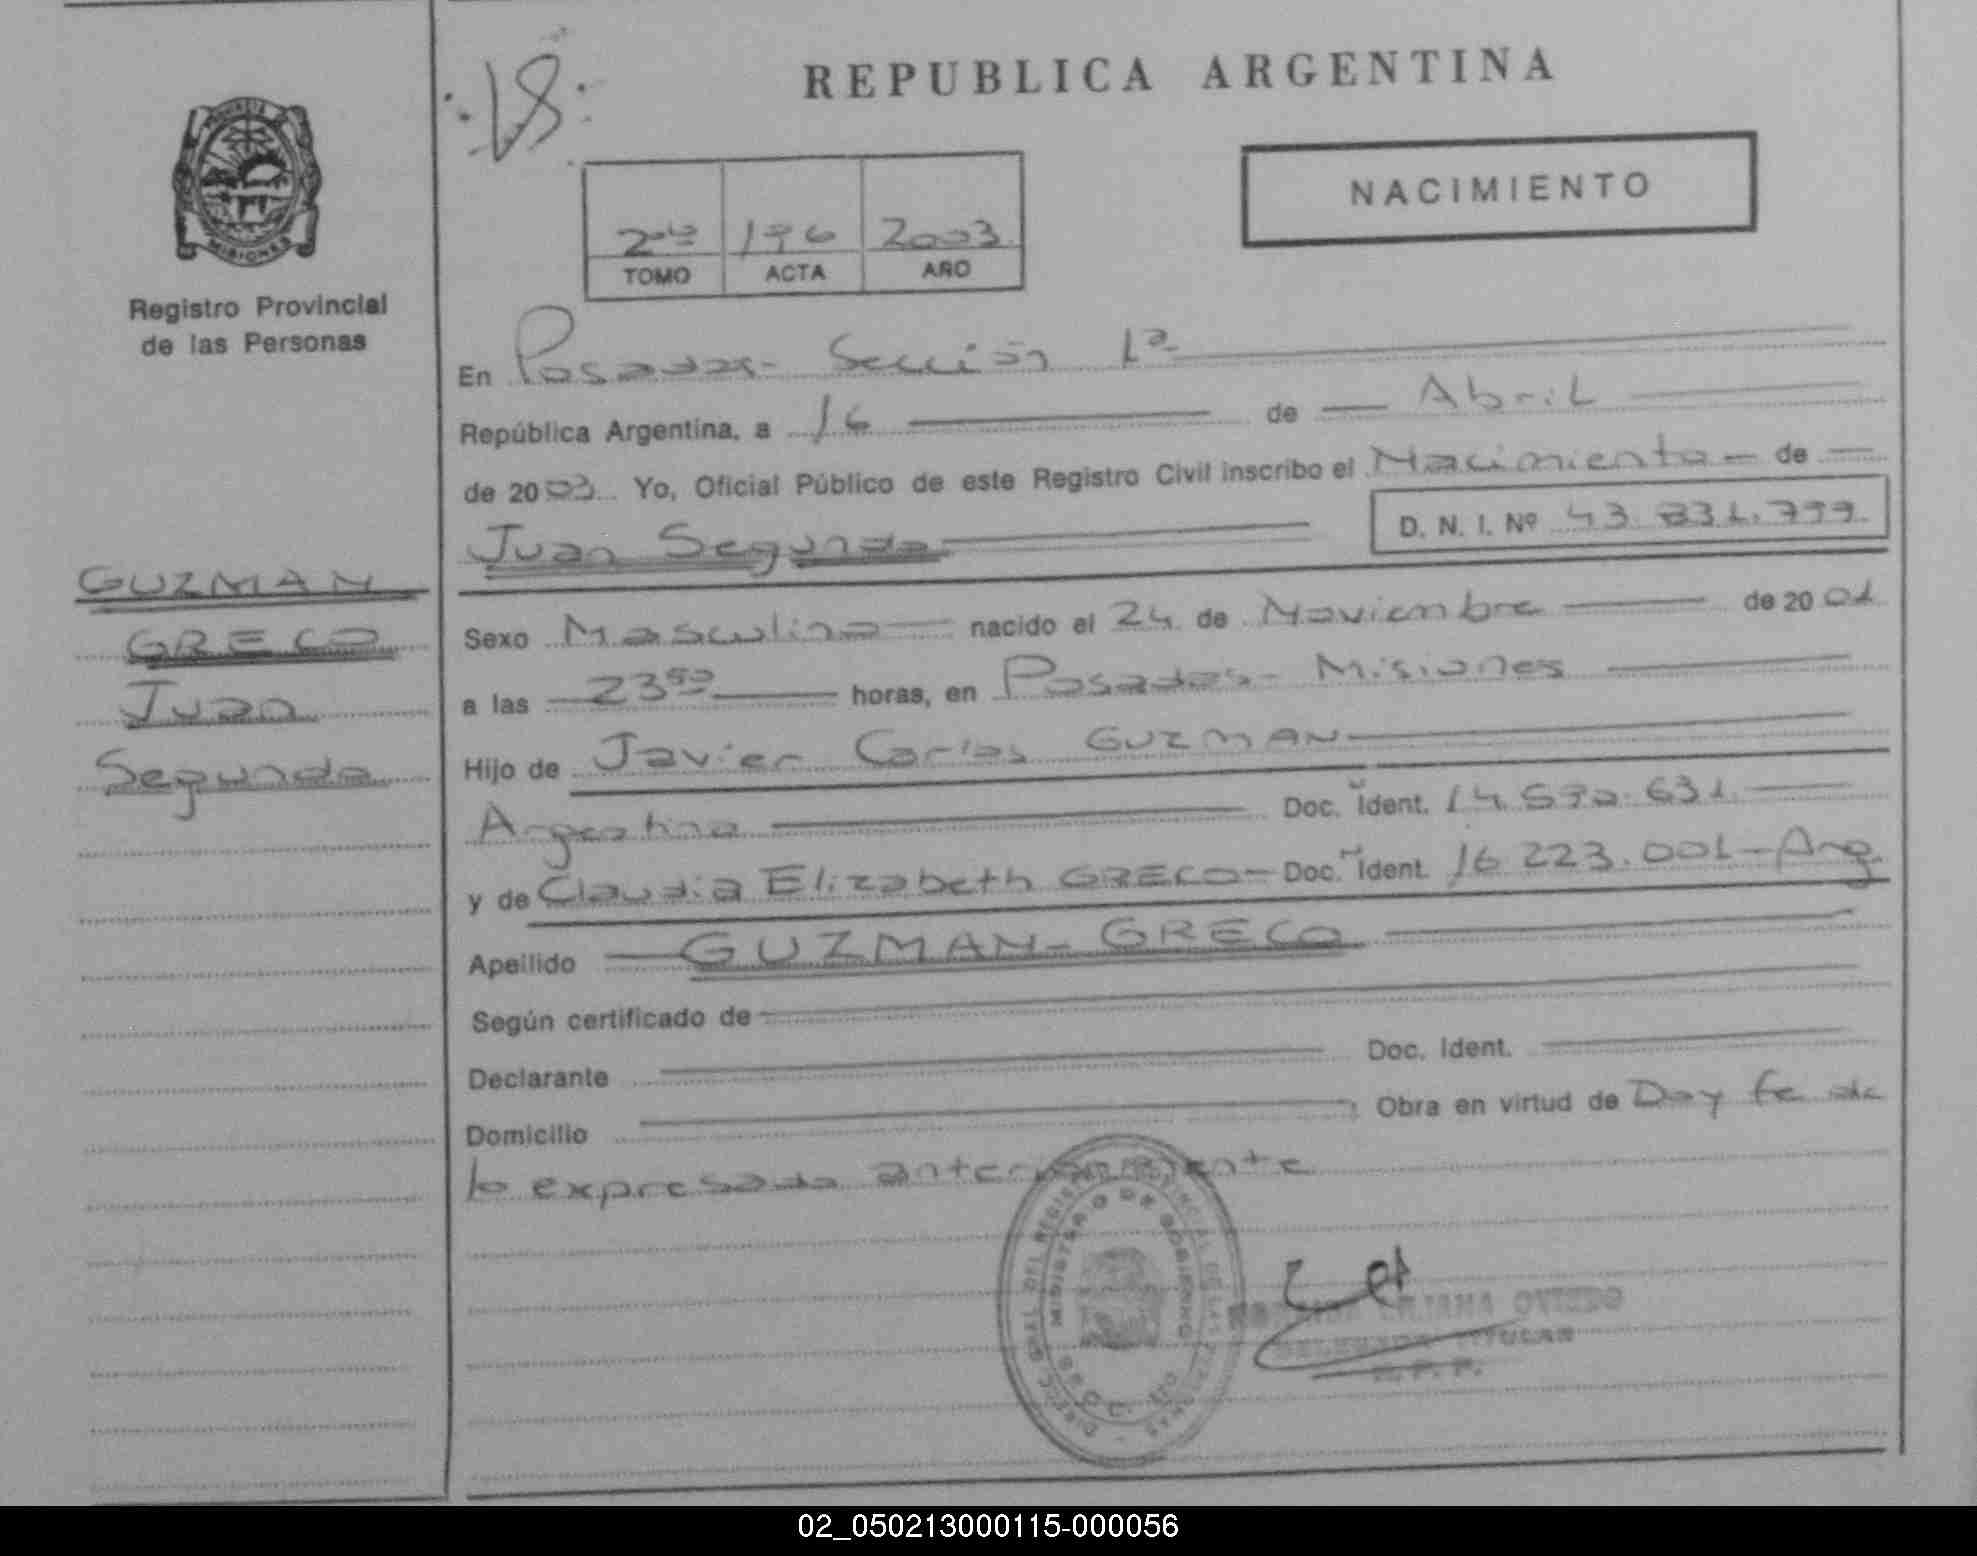 REPUBLICA ARGENTINA
NACIMIENTO
2003
TOMO ACTA AÑO
PROVINCIA
MISIONES
Registro Provincial
de las Personas
En Posadas- Sección 1ª
República Argentina, a 16 de Abril
de 2003 Yo, Oficial Público de este Registro Civil inscribo el Nacimiento de
Juan Segundo D. N. I. Nº 43.831.799
GUZMAN
GRECO
Juan
Segundo
Sexo Masculino nacido el 24 de Noviembre de 2001
a las 23⁵⁰ horas, en Posadas- Misiones
Hijo de Javier Carlos GUZMAN
Argentino Doc. Ident. 14.590.631
y de Claudia Elizabeth GRECO- Doc. Ident. 16.223.001-Arg.
Apellido GUZMAN- GRECO
Según certificado de
Declarante Doc. Ident.
Domicilio , Obra en virtud de Doy fe de
lo expresado anteriormente
MINISTERIO DE GOBIERNO
LILIANA OVIEDO
DELEGADA TITULAR
R. P. P.
02_050213000115-000056